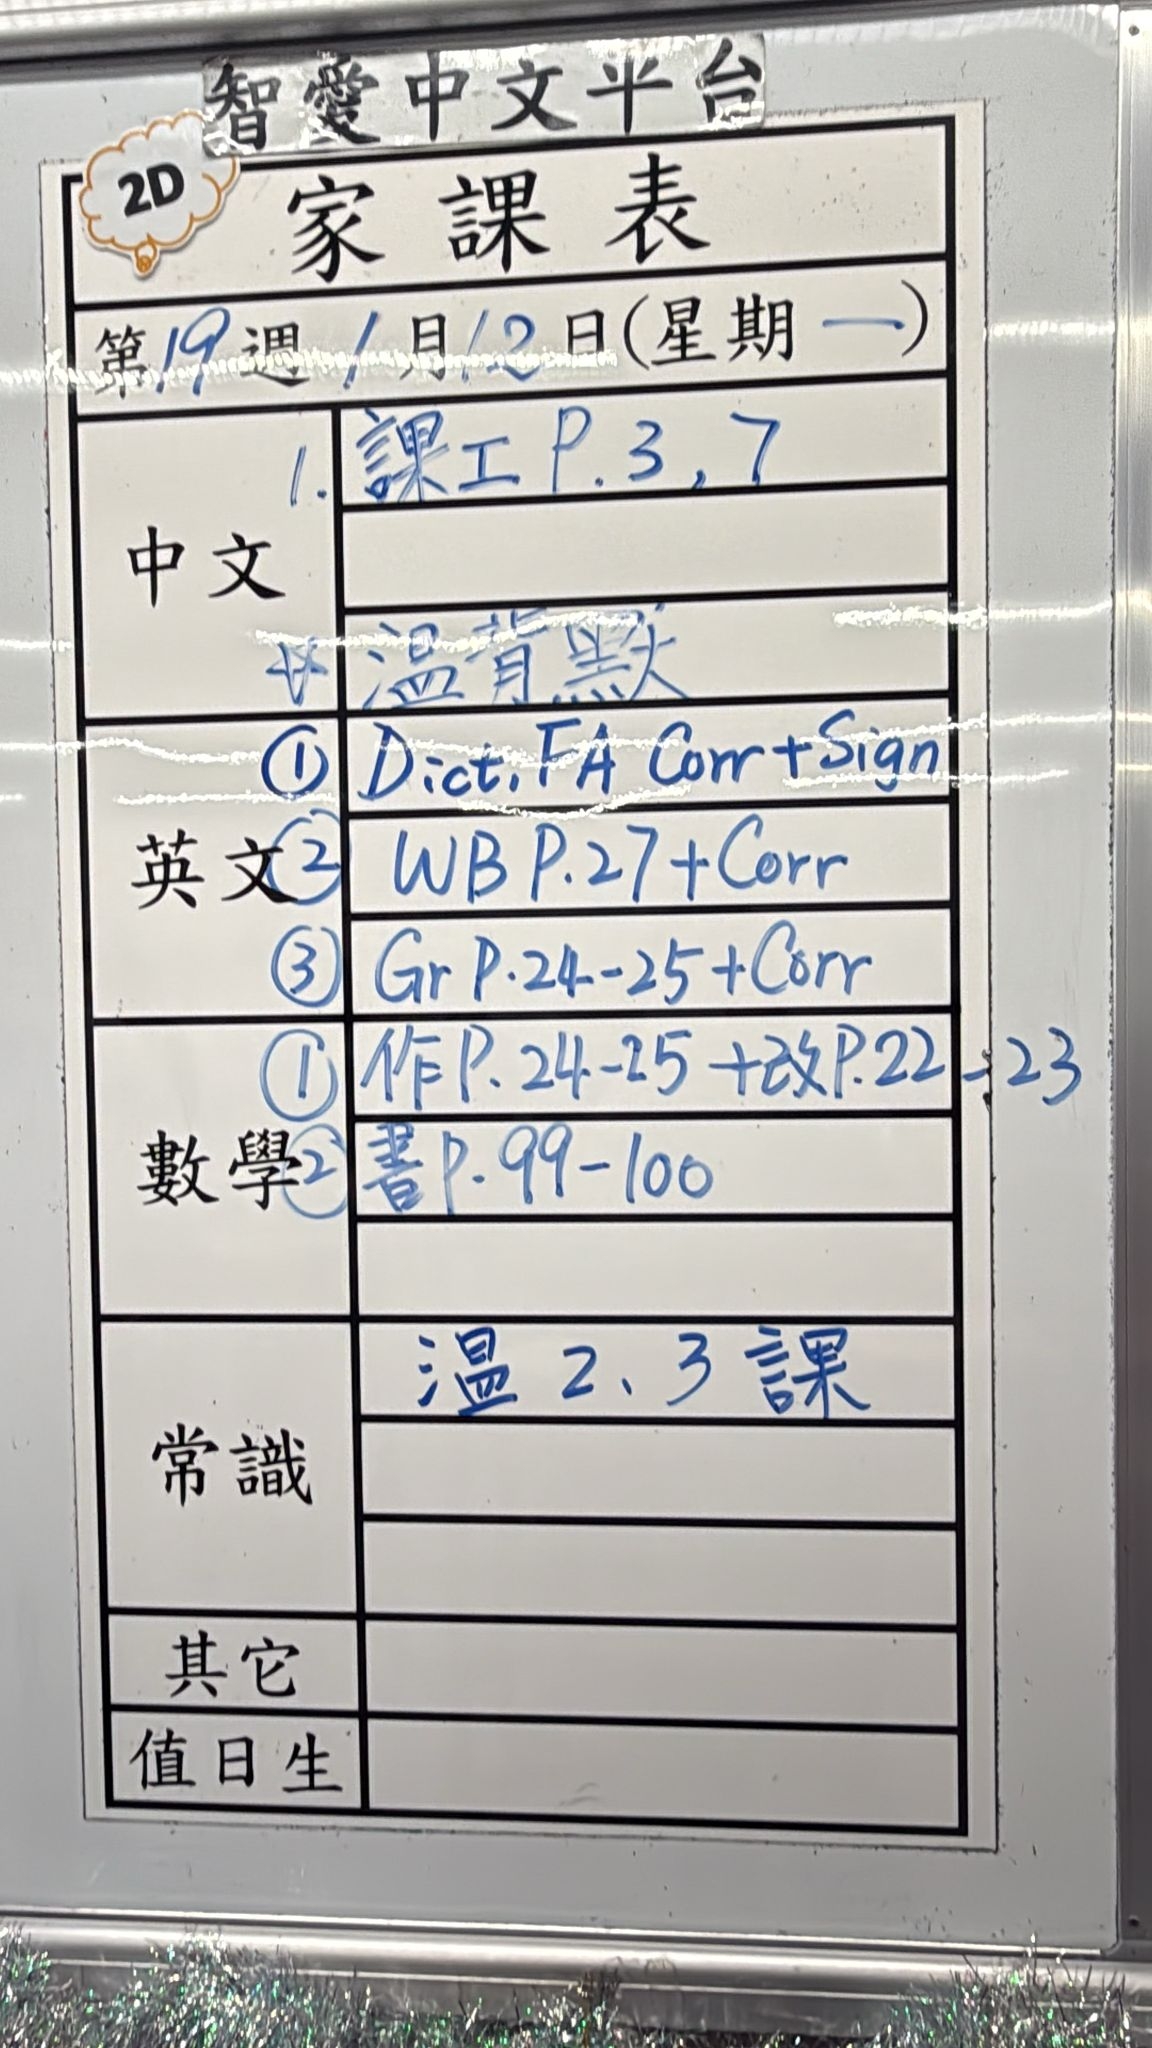 智愛中文平台
2D
家課表
第19週 1月12日(星期一)
中文
1. 課工P.3,7
☆ 溫背默
英文
① Dict. FA Corr+Sign
② WB P.27+Corr
③ Gr P.24-25+Corr
數學
① 作P.24-25+改P.22-23
② 書P.99-100
常識
溫2、3課
其它
值日生